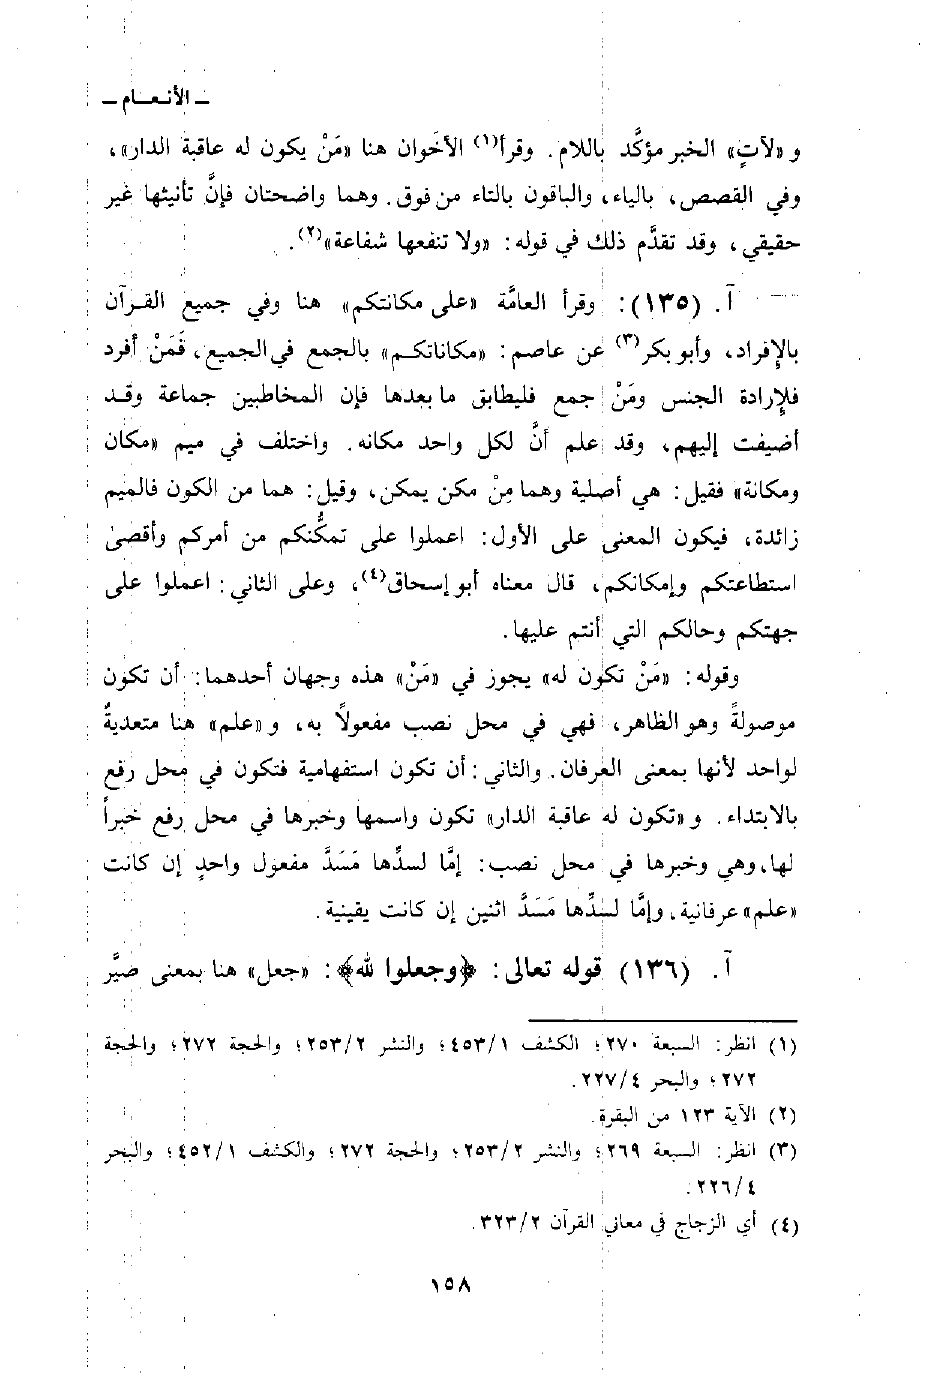 ـ الأنـعـــام ـ
و «لآتٍ» الخبر مؤكَّد باللام. وقرأ(١) الأخَوان هنا «مَنْ يكون له عاقبة الدار»،
وفي القصص، بالياء، والباقون بالتاء من فوق. وهما واضحتان فإنَّ تأنيثها غير
حقيقي، وقد تقدَّم ذلك في قوله: «ولا تنفعها شفاعة»(٢).
آ. (١٣٥): وقرأ العامَّة «على مكانتكم» هنا وفي جميع القرآن
بالإِفراد، وأبو بكر(٣) عن عاصم: «مكاناتكم» بالجمع في الجميع، فَمَنْ أفرد
فلإِرادة الجنس ومَنْ جمع فليطابق ما بعدها فإن المخاطبين جماعة وقد
أضيفت إليهم، وقد علم أنَّ لكل واحد مكانه. واختلف في ميم «مكان
ومكانة» فقيل: هي أصلية وهما مِنْ مكن يمكن، وقيل: هما من الكون فالميم
زائدة، فيكون المعنى على الأول: اعملوا على تمكُّنكم من أمركم وأقصىٰ
استطاعتكم وإمكانكم، قال معناه أبو إسحاق(٤)، وعلى الثاني: اعملوا على
جهتكم وحالكم التي أنتم عليها.
وقوله: «مَنْ تكون له» يجوز في «مَنْ» هذه وجهان أحدهما: أن تكون
موصولةً وهو الظاهر، فهي في محل نصب مفعولاً به، و «علم» هنا متعديةٌ
لواحد لأنها بمعنى العرفان. والثاني: أن تكون استفهامية فتكون في محل رفع
بالابتداء. و «تكون له عاقبة الدار» تكون واسمها وخبرها في محل رفع خبراً
لها، وهي وخبرها في محل نصب: إمَّا لسدِّها مَسَدَّ مفعول واحدٍ إن كانت
«علم» عرفانية، وإمَّا لسدِّها مَسَدَّ اثنين إن كانت يقينية.
آ. (١٣٦) قوله تعالى: ﴿وجعلوا لله﴾: «جعل» هنا بمعنى صيَّر
(١) انظر: السبعة ٢٧٠؛ الكشف ٤٥٣/١؛ والنشر ٢٥٣/٢؛ والحجة ٢٧٢؛ والحجة
٢٧٢؛ والبحر ٢٢٧/٤.
(٢) الآية ١٢٣ من البقرة.
(٣) انظر: السبعة ٢٦٩؛ والنشر ٢٥٣/٢؛ والحجة ٢٧٢؛ والكشف ٤٥٢/١؛ والبحر
٢٢٦/٤.
(٤) أي الزجاج في معاني القرآن ٣٢٣/٢.
١٥٨